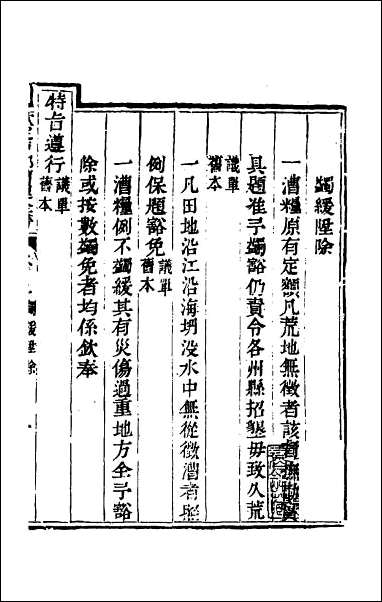 蠲緩陞除
一漕糧原有定額凡荒地無徵者該督撫勘實
具題准予蠲豁仍責令各州縣招墾毋致久荒
議單
舊本
一凡田地沿江沿海坍没水中無從徵漕者照
例保題豁免
議單
舊本
一漕糧例不蠲緩其有災傷過重地方全予豁
除或按數蠲免者均係欽奉
特旨遵行
議單
舊本
蠲緩陞除